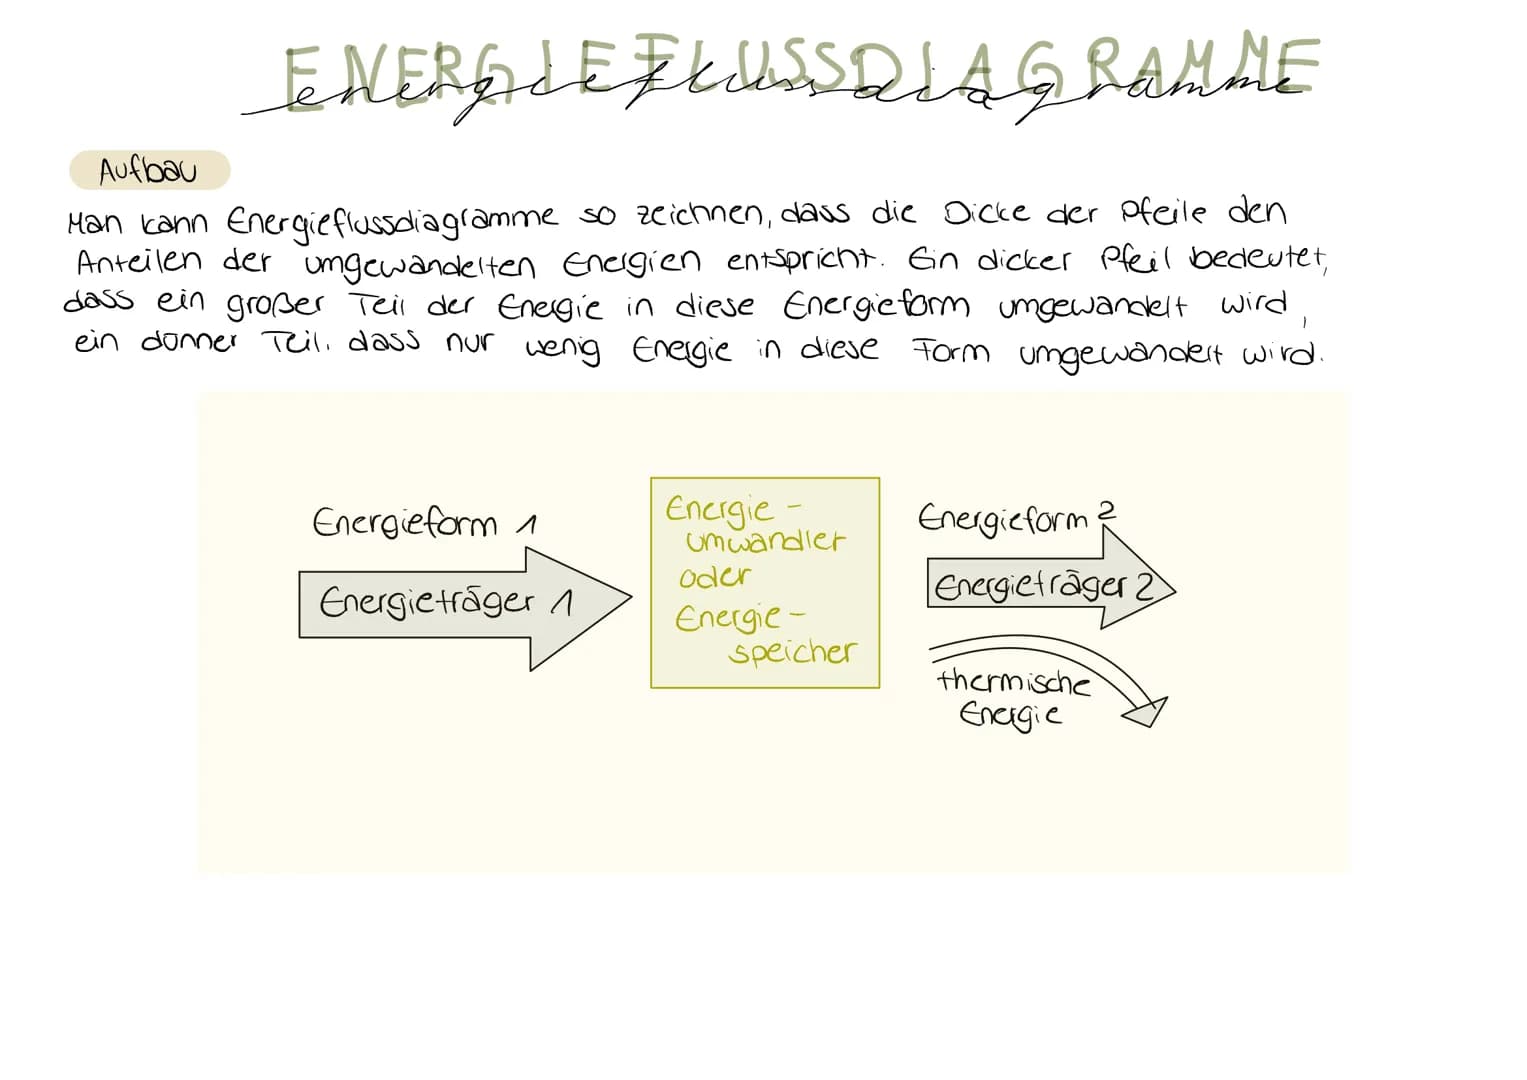 ENERGIEFLUSSDIAGRAMME
energieflussdiagramme
Aufbau
Man kann Energieflussdiagramme so zeichnen, dass die Dicke der Pfeile den
Anteilen der umgewandelten Energien entspricht. Ein dicker Pfeil bedeutet,
dass ein großer Teil der Energie in diese Energieform umgewandelt wird,
ein dünner Teil, dass nur wenig Energie in diese Form umgewandelt wird.
Energieform 1
Energieträger 1
Energie-
umwandler
oder
Energie-
speicher
Energieform 2
Energieträger 2
thermische
Energie